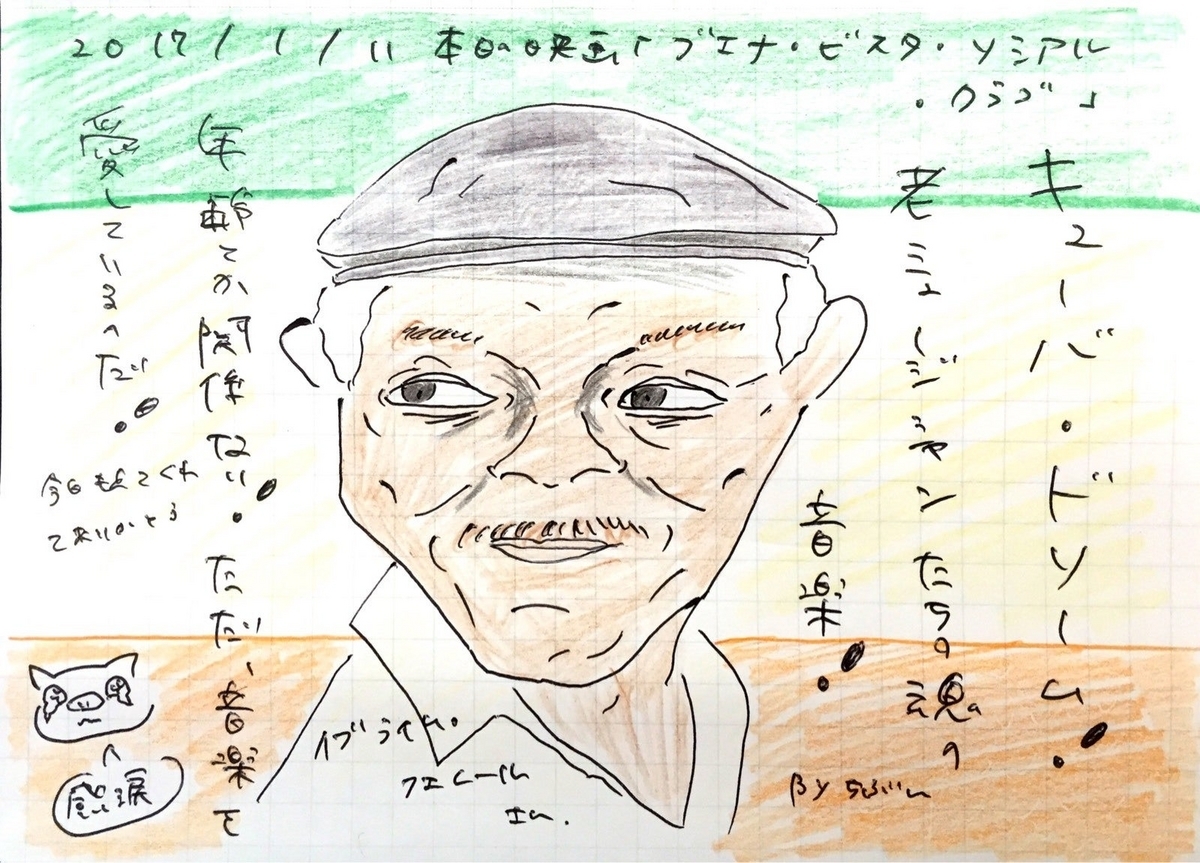 2017/1/11 本日の映画「ブエナ・ビスタ・ソシアル
・クラブ」
キューバ・ドリーム!
老ミュージシャンたちの魂の
音楽!
年齢とか関係ない!ただ、音楽を
愛しているのだ!
今日も見てくれ
てありがとう
感涙
イブライム・
フェレール
さん.
By